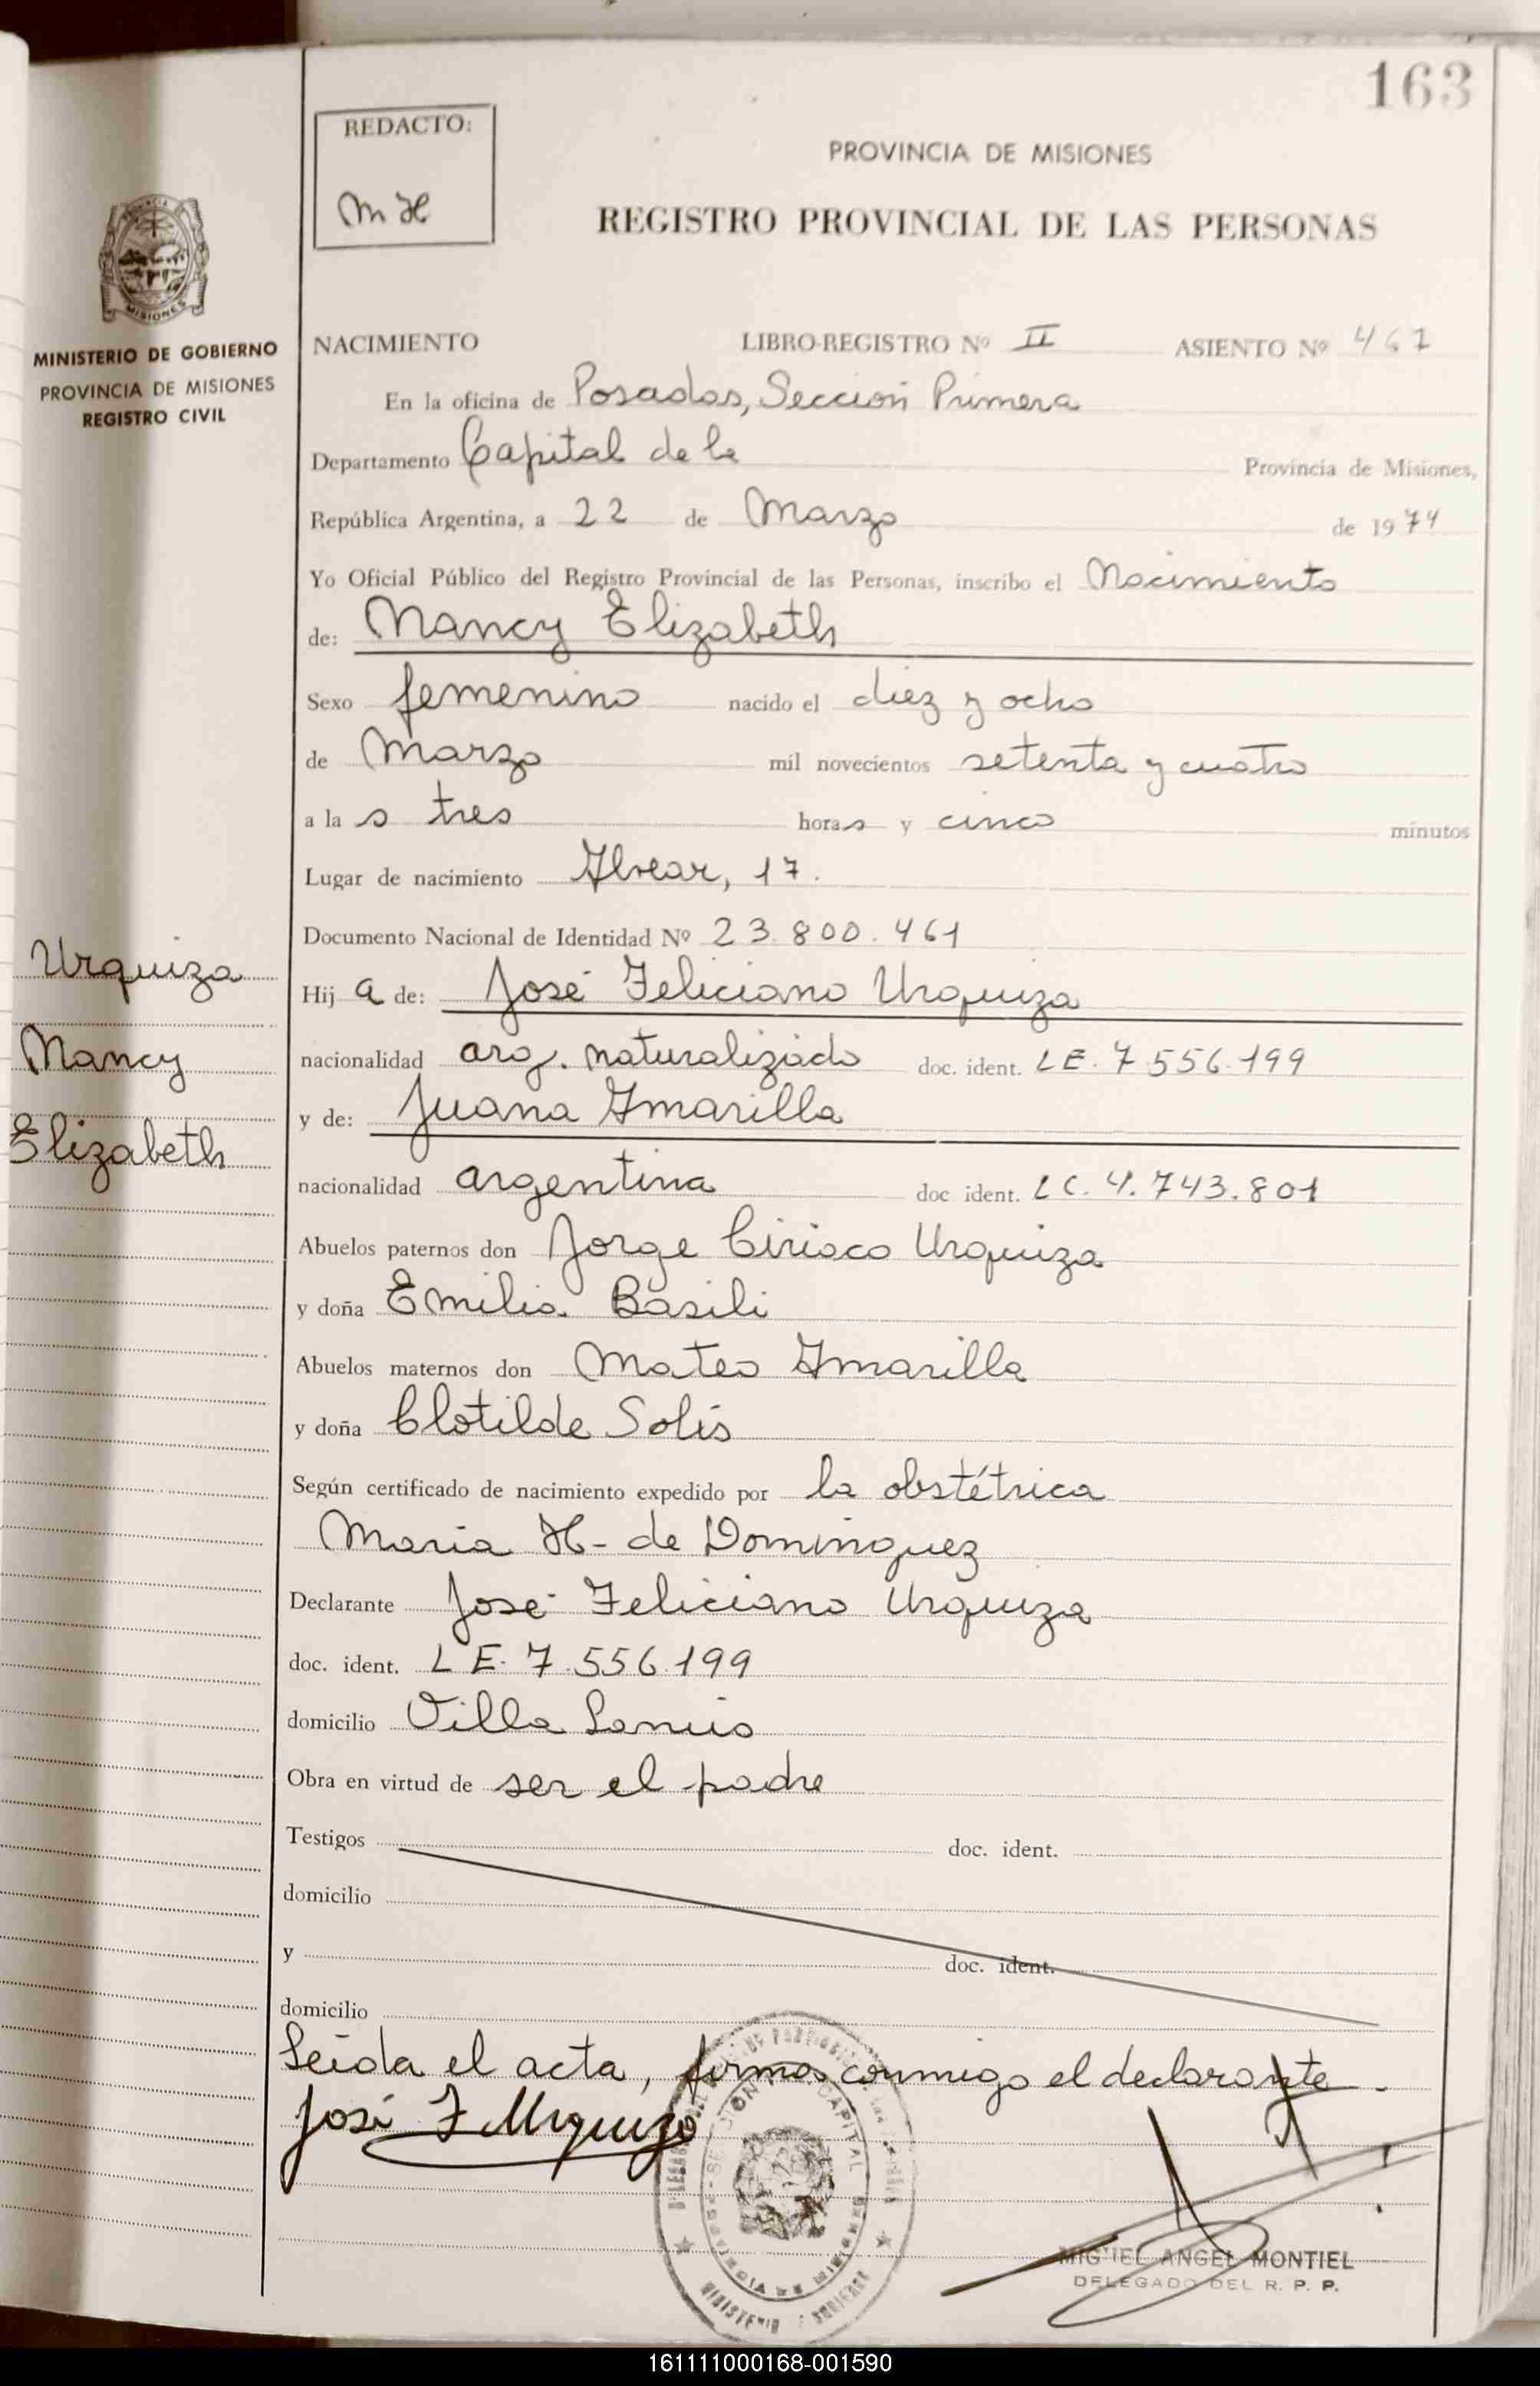 163
REDACTO:
m H
PROVINCIA DE MISIONES
REGISTRO PROVINCIAL DE LAS PERSONAS
MISIONES
MINISTERIO DE GOBIERNO
PROVINCIA DE MISIONES
REGISTRO CIVIL
NACIMIENTO LIBRO-REGISTRO Nº II ASIENTO Nº 467
En la oficina de Posadas, Sección Primera
Departamento Capital de la Provincia de Misiones,
República Argentina, a 22 de Marzo de 1974
Yo Oficial Público del Registro Provincial de las Personas, inscribo el Nacimiento
de: Nancy Elizabeth
Sexo femenino nacido el diez y ocho
de Marzo mil novecientos setenta y cuatro
a la s tres horas y cinco minutos
Lugar de nacimiento Alvear, 17.
Documento Nacional de Identidad Nº 23.800.461
Urquiza
Nancy
Elizabeth
Hij a de: José Feliciano Urquiza
nacionalidad arg. naturalizado doc. ident. LE. 7.556.199
y de: Juana Amarilla
nacionalidad argentina doc ident. LC. 4.743.801
Abuelos paternos don Jorge Ciriaco Urquiza
y doña Emilia Basili
Abuelos maternos don Mateo Amarilla
y doña Clotilde Solís
Según certificado de nacimiento expedido por la obstétrica
Maria H- de Dominguez
Declarante José Feliciano Urquiza
doc. ident. LE. 7.556.199
domicilio Villa Lanús
Obra en virtud de ser el padre
Testigos doc. ident.
domicilio
y doc. ident.
domicilio
Leída el acta, firma conmigo el declarante.
José F Urquiza
MIGUEL ANGEL MONTIEL
DELEGADO DEL R. P. P.
161111000168-001590